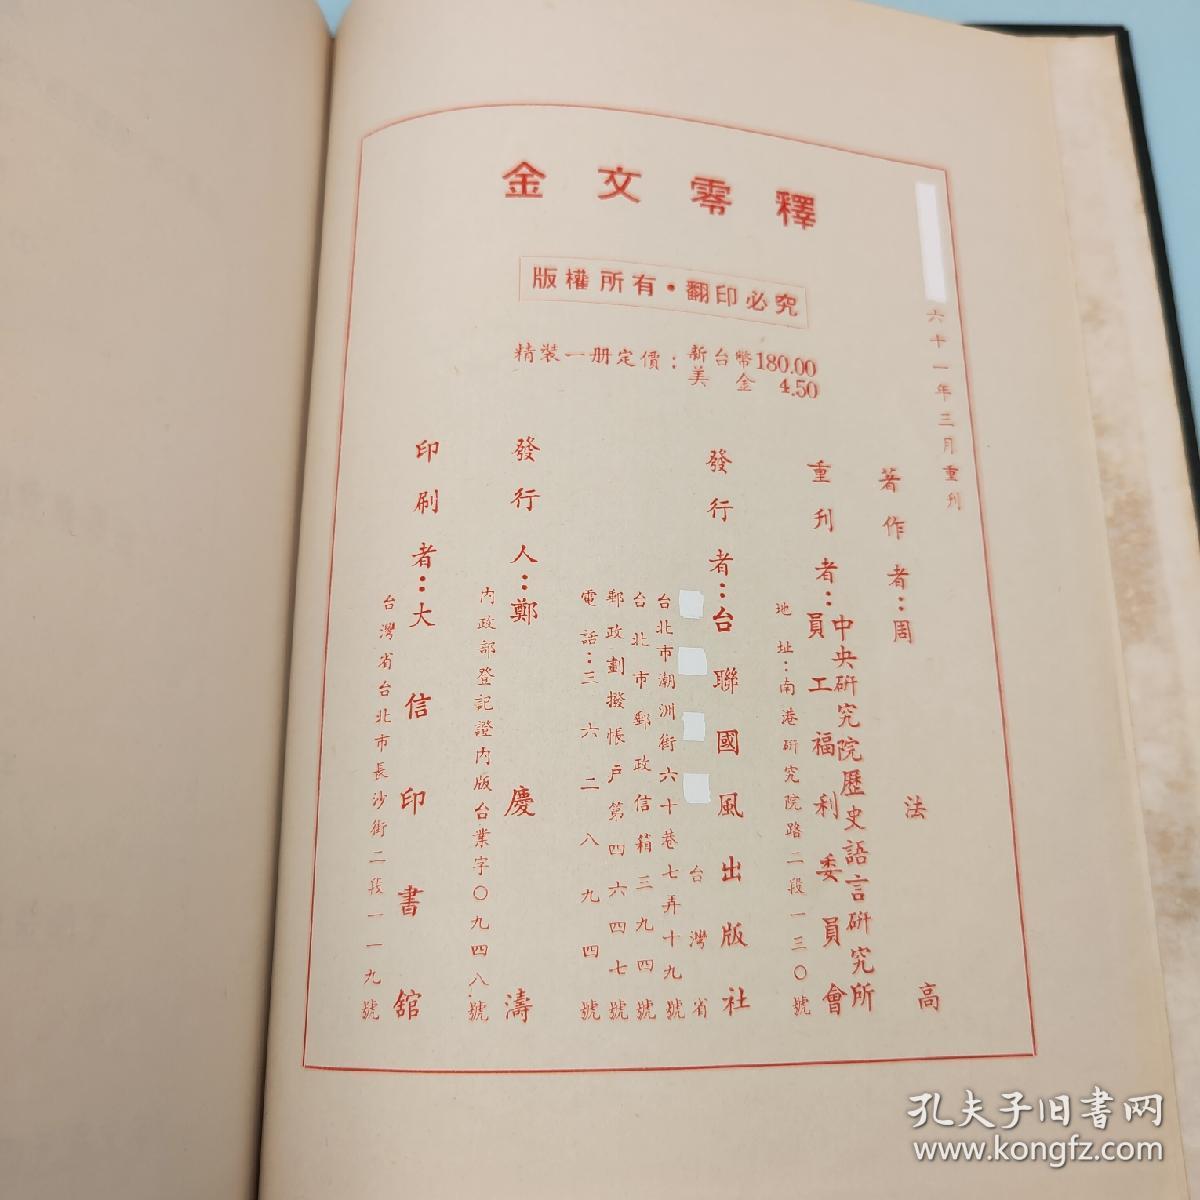 金文零釋
版權所有·翻印必究
精裝一册定價：新台幣180.00
美金 4.50
六十一年三月重刊
著作者：周法高
重刊者：中央研究院歷史語言研究所
員工福利委員會
地址：南港研究院路二段一三〇號
發行者：台聯國風出版社
台灣省
台北市潮洲街六十巷七弄十九號
台北市郵政信箱三九四號
郵政劃撥帳戶第四六四七號
電話：三六二八九四號
發行人：鄭慶濤
內政部登記證內版台業字〇九四八號
印刷者：大信印書舘
台灣省台北市長沙街二段一一九號
孔夫子旧书网
www.kongfz.com